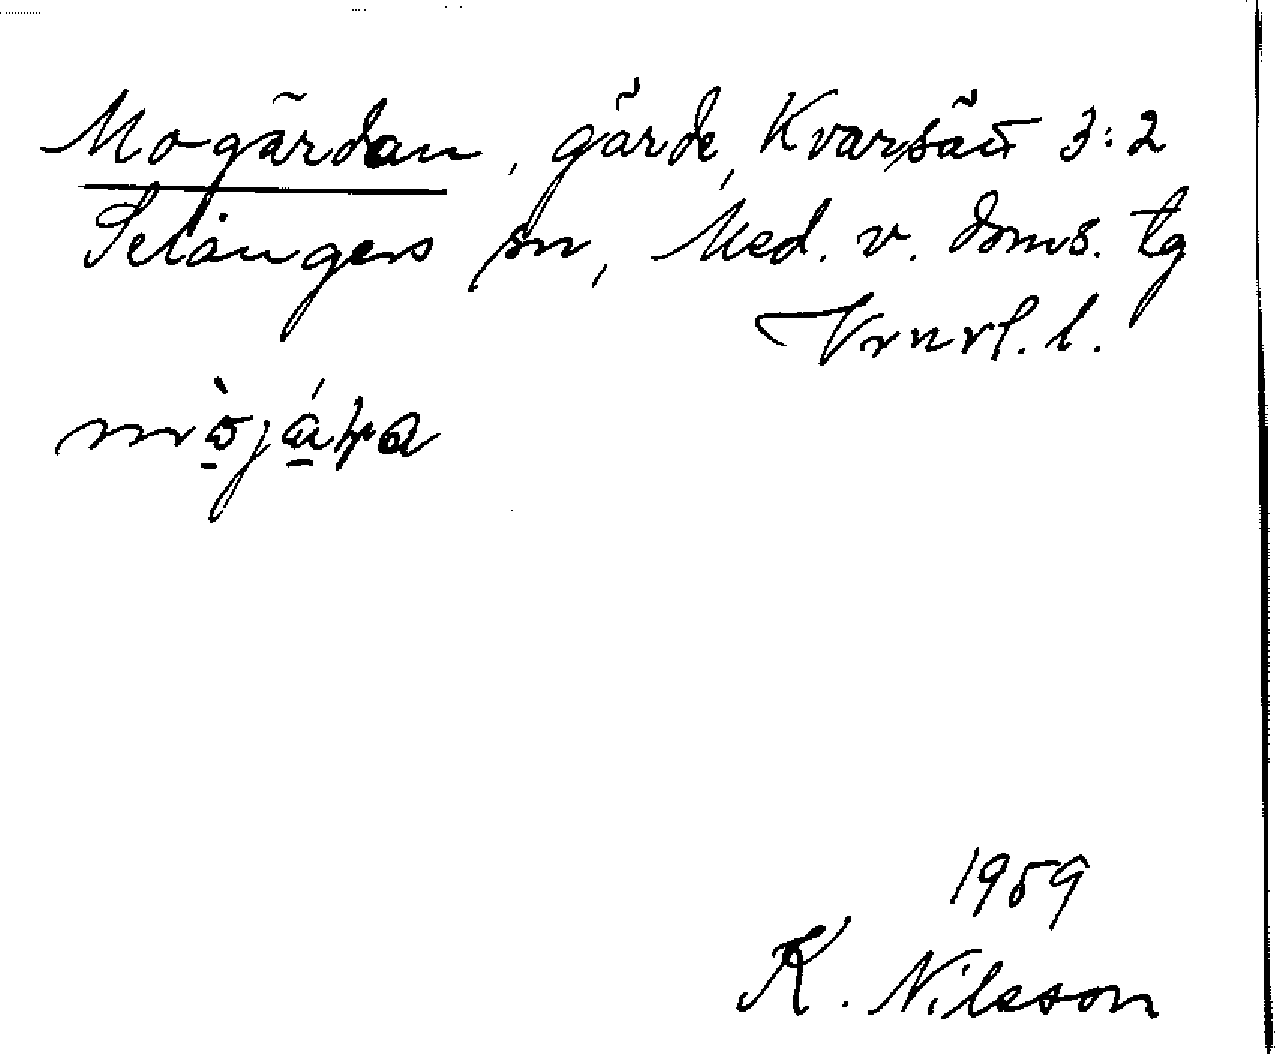 Mogärdan, gärde, Kvarsätt 3:2
Selångers sn, Med. v. doms. tg
Vrnrl. l.
1959
K. Nilsson